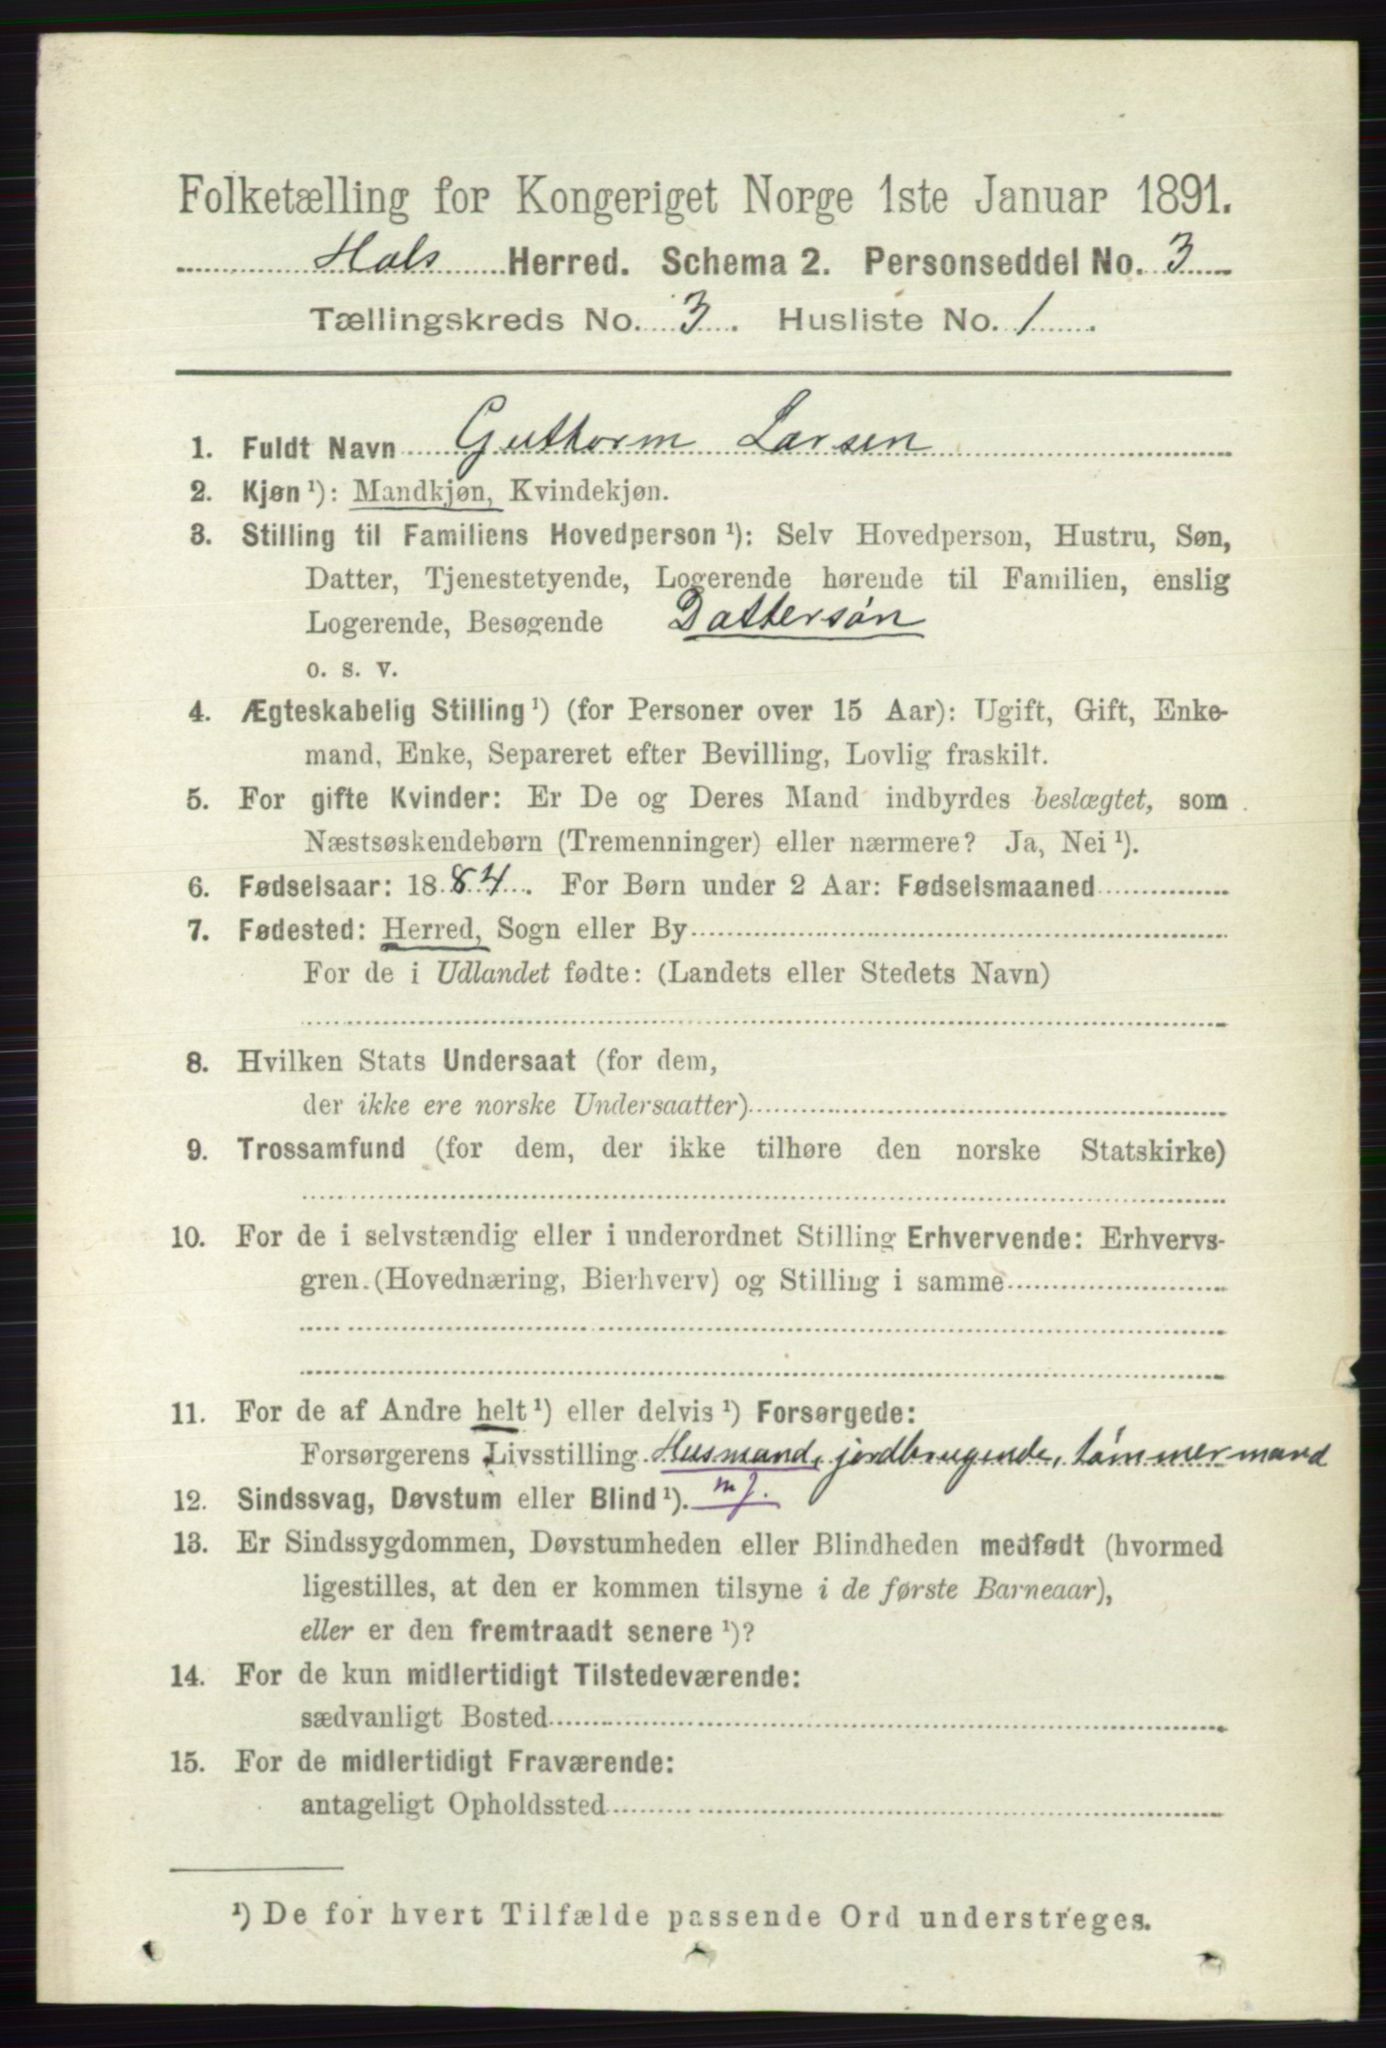 Folketælling for Kongeriget Norge 1ste Januar 1891.
Hals Herred. Schema 2. Personseddel No. 3
Tællingskreds No. 3. Husliste No. 1.
1. Fuldt Navn Guttorm Larsen
2. Kjøn ¹): Mandkjøn, Kvindekjøn.
3. Stilling til Familiens Hovedperson ¹): Selv Hovedperson, Hustru, Søn,
Datter, Tjenestetyende, Logerende hørende til Familien, enslig
Logerende, Besøgende Dattersøn
o. s. v.
4. Ægteskabelig Stilling ¹) (for Personer over 15 Aar): Ugift, Gift, Enke-
mand, Enke, Separeret efter Bevilling, Lovlig fraskilt.
5. For gifte Kvinder: Er De og Deres Mand indbyrdes beslægtet, som
Næstsøskendebørn (Tremenninger) eller nærmere? Ja, Nei ¹).
6. Fødselsaar: 1884. For Børn under 2 Aar: Fødselsmaaned
7. Fødested: Herred, Sogn eller By
For de i Udlandet fødte: (Landets eller Stedets Navn)
8. Hvilken Stats Undersaat (for dem,
der ikke ere norske Undersaatter)
9. Trossamfund (for dem, der ikke tilhøre den norske Statskirke)
10. For de i selvstændig eller i underordnet Stilling Erhvervende: Erhvervs-
gren (Hovednæring, Bierhverv) og Stilling i samme
11. For de af Andre helt ¹) eller delvis ¹) Forsørgede:
Forsørgerens Livsstilling Husmand, jordbrugende, tömmermand
12. Sindssvag, Døvstum eller Blind ¹). m j.
13. Er Sindssygdommen, Døvstumheden eller Blindheden medfødt (hvormed
ligestilles, at den er kommen tilsyne i de første Barneaar),
eller er den fremtraadt senere ¹)?
14. For de kun midlertidigt Tilstedeværende:
sædvanligt Bosted
15. For de midlertidigt Fraværende:
antageligt Opholdssted
¹) De for hvert Tilfælde passende Ord understreges.